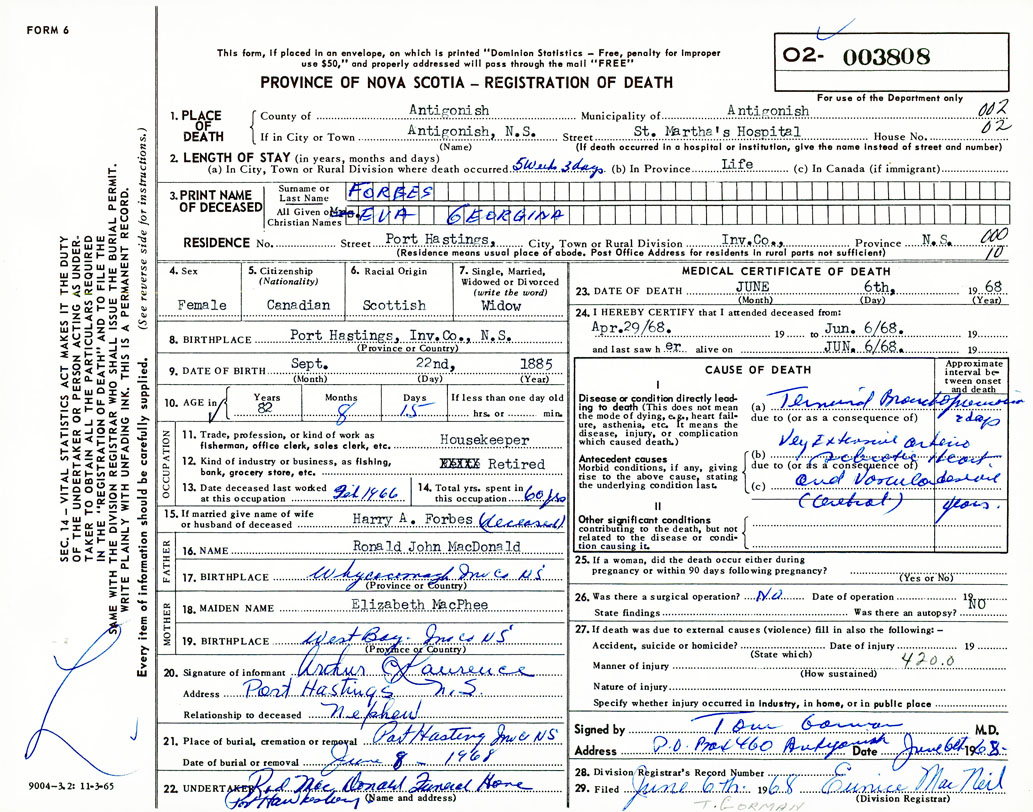 FORM 6
This form, if placed in an envelope, on which is printed "Dominion Statistics – Free, penalty for improper
use $50," and properly addressed will pass through the mail "FREE"
PROVINCE OF NOVA SCOTIA – REGISTRATION OF DEATH
02- 003808
For use of the Department only
002
02
1. PLACE OF DEATH
County of Antigonish Municipality of Antigonish
If in City or Town Antigonish, N.S. Street St. Martha's Hospital House No.
(Name) (If death occurred in a hospital or institution, give the name instead of street and number)
2. LENGTH OF STAY (in years, months and days)
(a) In City, Town or Rural Division where death occurred 5 Weeks 3 days (b) In Province Life (c) In Canada (if immigrant)
3. PRINT NAME OF DECEASED
Surname or Last Name FORBES
All Given or Christian Names Mrs. EVA GEORGINA
RESIDENCE No. Street Port Hastings, City, Town or Rural Division Inv.Co., Province N.S. 000
(Residence means usual place of abode. Post Office Address for residents in rural parts not sufficient) 10
4. Sex
Female
5. Citizenship
(Nationality)
Canadian
6. Racial Origin
Scottish
7. Single, Married,
Widowed or Divorced
(write the word)
Widow
8. BIRTHPLACE Port Hastings, Inv.Co., N.S.
(Province or Country)
9. DATE OF BIRTH Sept. 22nd, 1885
(Month) (Day) (Year)
10. AGE in
Years 82
Months 8
Days 15
If less than one day old
hrs. or min.
OCCUPATION
11. Trade, profession, or kind of work as
fisherman, office clerk, sales clerk, etc. Housekeeper
12. Kind of industry or business, as fishing,
bank, grocery store, etc. XXXXX Retired
13. Date deceased last worked
at this occupation Feb 1966
14. Total yrs. spent in
this occupation 60 yrs
15. If married give name of wife
or husband of deceased Harry A. Forbes (deceased)
FATHER
16. NAME Ronald John MacDonald
17. BIRTHPLACE Whycocomagh Inv Co NS
(Province or Country)
MOTHER
18. MAIDEN NAME Elizabeth MacPhee
19. BIRTHPLACE West Bay- Inv Co NS
(Province or Country)
20. Signature of informant Arthur Laurence
Address Port Hastings N.S.
Relationship to deceased Nephew
21. Place of burial, cremation or removal Port Hasting Inv Co NS
Date of burial or removal June 8 - 1968
22. UNDERTAKER Rod Mac Donald Funeral Home
Port Hawkesbury (Name and address)
MEDICAL CERTIFICATE OF DEATH
23. DATE OF DEATH JUNE 6th, 19 68
(Month) (Day) (Year)
24. I HEREBY CERTIFY that I attended deceased from:
Apr.29/68. 19 to Jun. 6/68. 19
and last saw h er alive on JUN. 6/68. 19
CAUSE OF DEATH
Approximate
interval be-
tween onset
and death
I
Disease or condition directly lead-
ing to death (This does not mean
the mode of dying, e.g., heart fail-
ure, asthenia, etc. It means the
disease, injury, or complication
which caused death.)
(a) Terminal Bronchopneumonia
due to (or as a consequence of) 2 days
Antecedent causes
Morbid conditions, if any, giving
rise to the above cause, stating
the underlying condition last.
Very Extensive arterio
(b) sclerotic Heart
due to (or as a consequence of)
(c) and Vascular disease
(Cerebral) years.
II
Other significant conditions
contributing to the death, but not
related to the disease or condi-
tion causing it.
25. If a woman, did the death occur either during
pregnancy or within 90 days following pregnancy?
(Yes or No)
26. Was there a surgical operation? No. Date of operation 19
State findings Was there an autopsy? NO
27. If death was due to external causes (violence) fill in also the following: –
Accident, suicide or homicide? Date of injury 19
(State which) 420.0
Manner of injury
(How sustained)
Nature of injury
Specify whether injury occurred in industry, in home, or in public place
Signed by Tom Gorman M.D.
Address P.O. Box 460 Antigonish Date June 6th 1968-
28. Division Registrar's Record Number
29. Filed June 6th. 1968 Eunice Mac Neil
(Division Registrar)
T. GORMAN
SEC. 14 – VITAL STATISTICS ACT MAKES IT THE DUTY
OF THE UNDERTAKER OR PERSON ACTING AS UNDER-
TAKER TO OBTAIN ALL THE PARTICULARS REQUIRED
IN THE "REGISTRATION OF DEATH" AND TO FILE THE
SAME WITH THE DIVISION REGISTRAR WHO SHALL ISSUE THE BURIAL PERMIT.
WRITE PLAINLY WITH UNFADING INK. THIS IS A PERMANENT RECORD.
Every item of information should be carefully supplied. (See reverse side for instructions.)
9004-3.2: 11-3-65